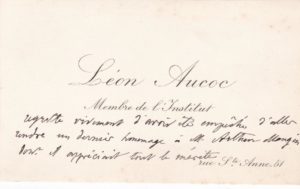 Léon Aucoc
Membre de l'Institut
regrette vivement d'avoir été empêché d'aller
rendre un dernier hommage à M. Arthur Mangin
dont il appréciait tout le mérite
rue Ste Anne 51